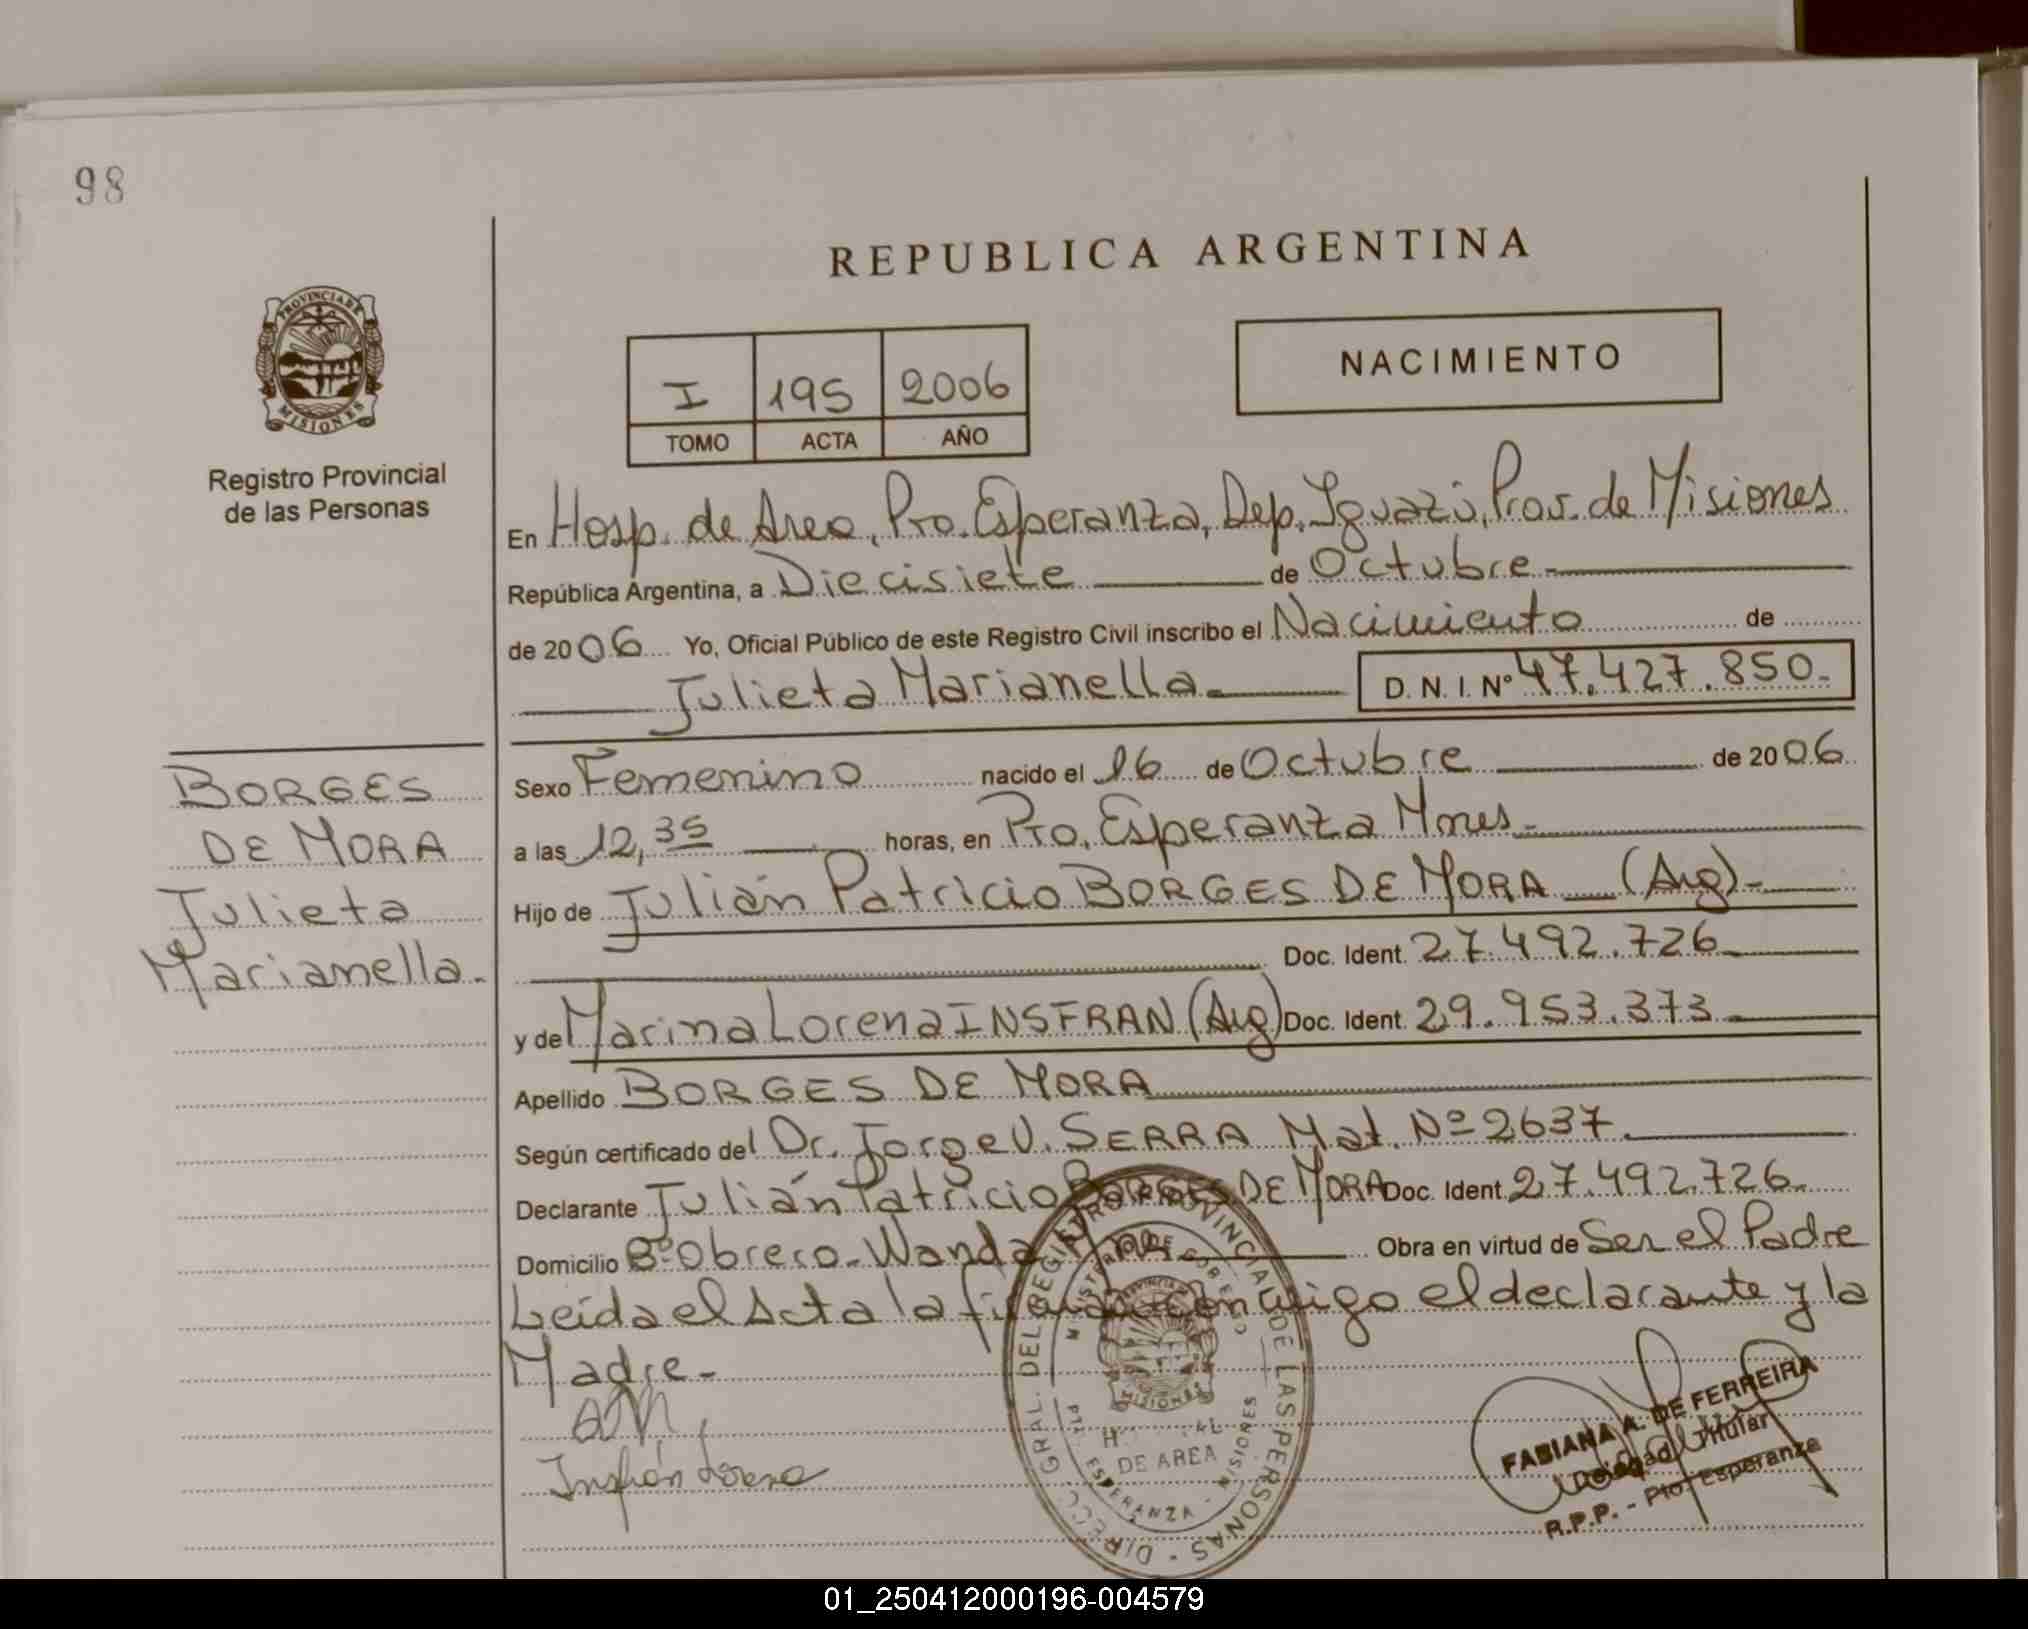 98
REPUBLICA ARGENTINA
PROVINCIA DE
MISIONES
Registro Provincial
de las Personas
I 195 2006
TOMO ACTA AÑO
NACIMIENTO
En Hosp. de Area, Pto. Esperanza, Dep. Iguazú, Prov. de Misiones
República Argentina, a Diecisiete de Octubre
de 2006 Yo, Oficial Público de este Registro Civil inscribo el Nacimiento de
Julieta Marianella D. N. I. Nº 47.427.850.-
BORGES
DE MORA
Julieta
Marianella.-
Sexo Femenino nacido el 16 de Octubre de 2006
a las 12,35 horas, en Pto. Esperanza Mnes.-
Hijo de Julián Patricio BORGES DE MORA (Arg)-
Doc. Ident. 27.492.726
y de Marina Lorena INSFRAN (Arg) Doc. Ident. 29.953.373
Apellido BORGES DE MORA
Según certificado del Dr. Jorge V. SERRA Mat. Nº 2637.
Declarante Julián Patricio BORGES DE MORA Doc. Ident. 27.492.726.
Domicilio Bº Obrero - Wanda Obra en virtud de Ser el Padre
Leída el Acta la firman conmigo el declarante y la
Madre.-
Insfrán Lorena
GRAL. DEL REGISTRO PROVINCIAL DE LAS PERSONAS - DIRECC
MINISTERIO DE GOBIERNO
PROVINCIA DE
MISIONES
DE AREA
ESPERANZA - MISIONES
FABIANA A. DE FERREIRA
Delegada Titular
R.P.P. - Pto. Esperanza
01_250412000196-004579